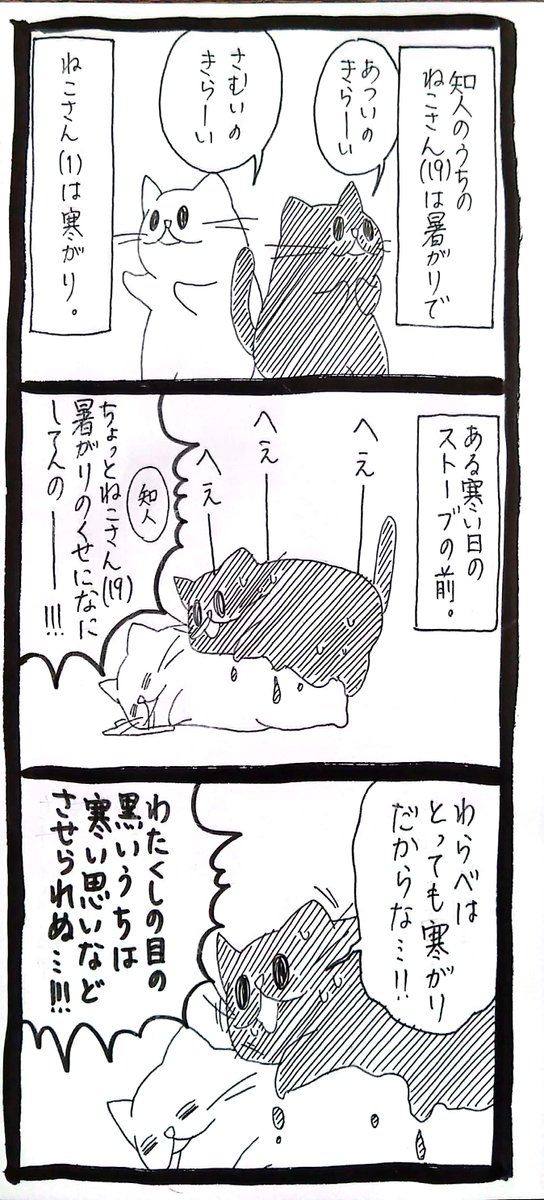 知人のうちの
ねこさん(19)は暑がりで
あついの
きらーい
さむいの
きらーい
ねこさん(1)は寒がり。
ある寒い日の
ストーブの前。
へえー
へえー
へえー
知人
ちょっとねこさん(19)
暑がりのくせになに
してんのー!!!
わらべは
とっても寒がり
だからな…!!
わたくしの目の
黒いうちは
寒い思いなど
させられぬ…!!!